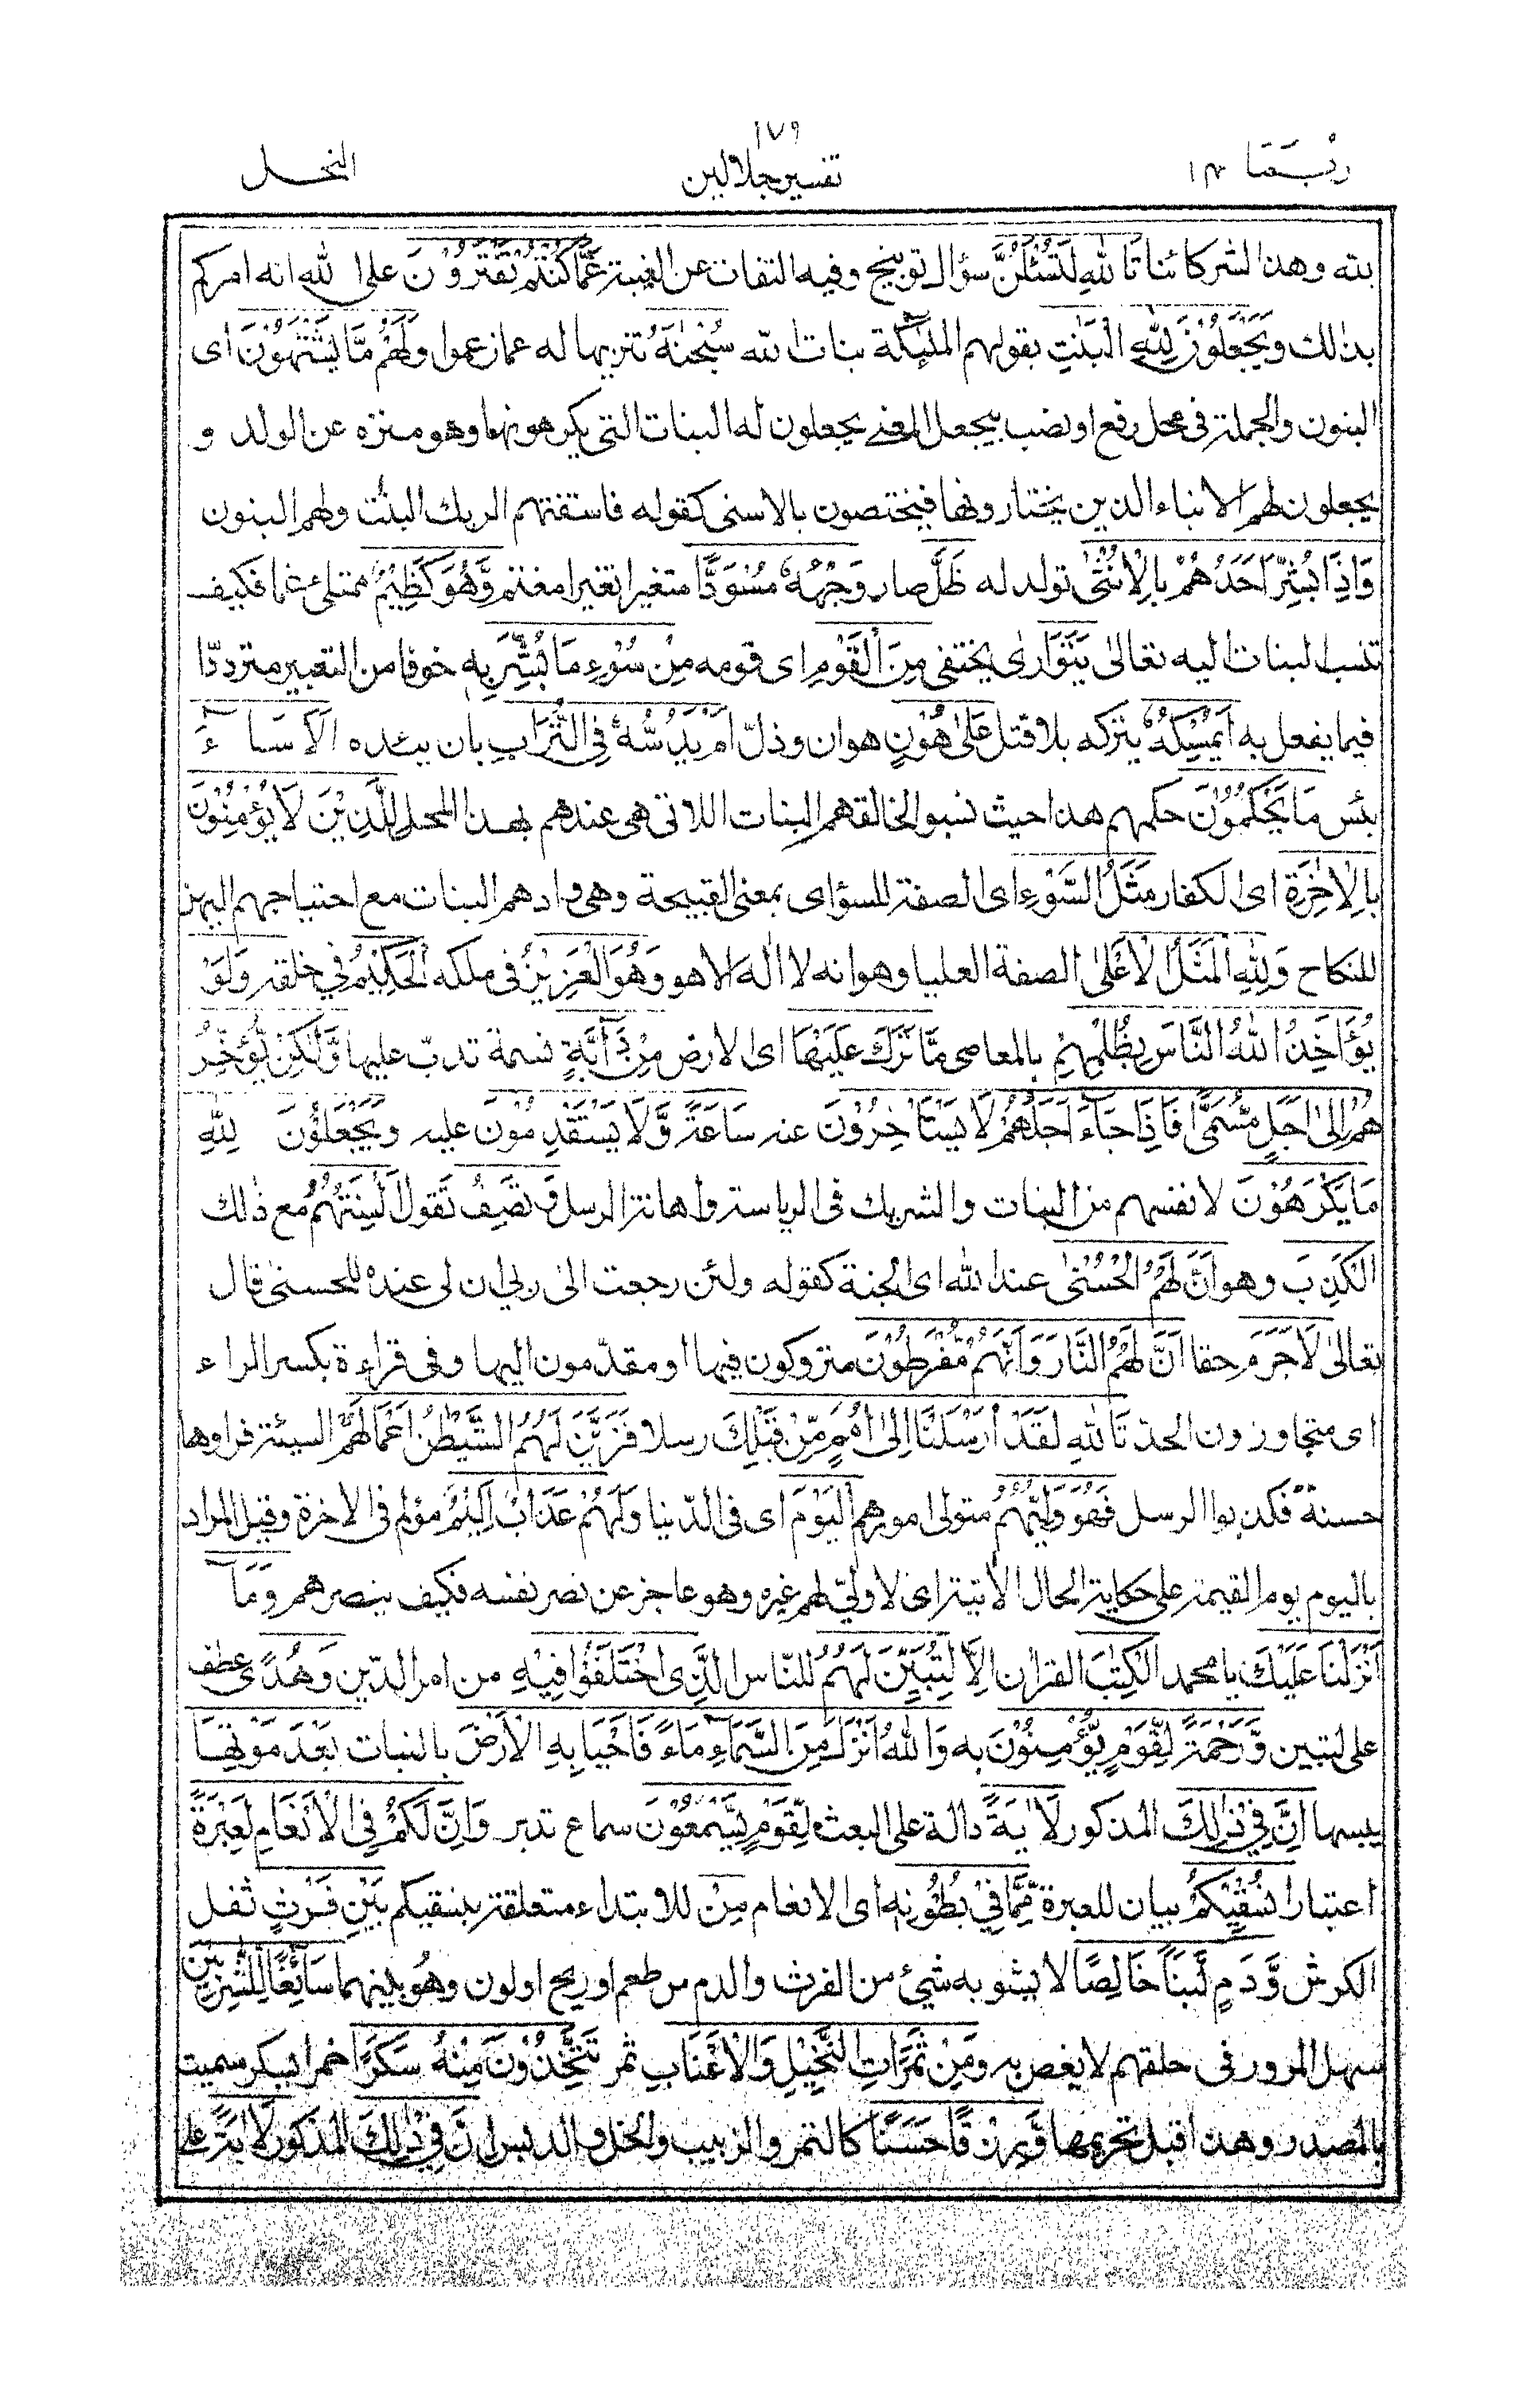 ربما ١٤
١٧٩
تفسير جلالين
النحل
لله وهذا لشركائنا تَاللّٰهِ لَتُسْئَلُنَّ سؤال توبيخ وفيه التفات عن الغيبة عَمَّا كُنْتُمْ تَفْتَرُوْنَ على الله انه امركم
بذلك وَيَجْعَلُوْنَ لِلّٰهِ الْبَنٰتِ بقولهم الملٰئكة بنات الله سُبْحٰنَهٗ تنزيها له عما زعموا وَلَهُمْ مَّا يَشْتَهُوْنَ اى
البنون والجملة فى محل رفع او نصب بيجعل المعنے يجعلون له البنات التى يكرهونها وهو منزه عن الولد و
يجعلون لهم الابناء الذين يختارونها فيختصون بالاسنى كقوله فاستفتهم الربك البنٰت ولهم البنون
وَاِذَا بُشِّرَ اَحَدُهُمْ بِالْاُنْثٰى تولد له ظَلَّ صار وَجْهُهٗ مُسْوَدًّا متغيرا تغير امغتم وَّهُوَ كَظِيْمٌ ممتلئ غما فكيف
تنسب البنات اليه تعالىٰ يَتَوَارٰى يختفى مِنَ الْقَوْمِ اى قومه مِنْ سُوْءِ مَا بُشِّرَ بِهٖ خوفا من التعيير متردّدا
فيما يفعل به اَيُمْسِكُهٗ يتركه بلا قتل عَلٰى هُوْنٍ هوان وذلّ اَمْ يَدُسُّهٗ فِى التُّرَابِ بان يئده اَلَا سَاۤءَ
بئس مَا يَحْكُمُوْنَ حكمهم هذا حيث نسبوا لخالقهم البنات اللاتى هى عندهم بهذا المحل لِلَّذِيْنَ لَا يُؤْمِنُوْنَ
بِالْاٰخِرَةِ اى الكفار مَثَلُ السَّوْءِ اى الصفة السؤاى بمعنى القبيحة وهى وادهم البنات مع احتياجهم اليهن
للنكاح وَلِلّٰهِ الْمَثَلُ الْاَعْلٰى الصفة العليا وهو انه لا اله الا هو وَهُوَ الْعَزِيْزُ فى ملكه الْحَكِيْمُ فى خلقه وَلَوْ
يُؤَاخِذُ اللّٰهُ النَّاسَ بِظُلْمِهِمْ بالمعاصى مَّا تَرَكَ عَلَيْهَا اى الارض مِنْ دَاۤبَّةٍ نسمة تدبّ عليها وَّلٰكِنْ يُّؤَخِّرُ
هُمْ اِلٰى اَجَلٍ مُّسَمًّى فَاِذَا جَاۤءَ اَجَلُهُمْ لَا يَسْتَاْخِرُوْنَ عنه سَاعَةً وَّلَا يَسْتَقْدِمُوْنَ عليه وَيَجْعَلُوْنَ لِلّٰهِ
مَا يَكْرَهُوْنَ لانفسهم من البنات والشريك فى الرياسة واهانة الرسل وَ تَصِفُ تقول اَلْسِنَتُهُمُ مع ذٰلك
الْكَذِبَ وهو اَنَّ لَهُمُ الْحُسْنٰى عند الله اى الجنة كقوله ولئن رجعت الىٰ ربى ان لى عنده للحسنىٰ قال
تعالىٰ لَا جَرَمَ حقا اَنَّ لَهُمُ النَّارَ وَاَنَّهُمْ مُّفْرَطُوْنَ متروكون فيها او مقدّمون اليها وفى قراءة بكسر الراء
اى متجاوزون الحد تَاللّٰهِ لَقَدْ اَرْسَلْنَا اِلٰى اُمَمٍ مِّنْ قَبْلِكَ رسلا فَزَيَّنَ لَهُمُ الشَّيْطٰنُ اَعْمَالَهُمْ السيئة فراوها
حسنة فكذبوا الرسل فَهُوَ وَلِيُّهُمُ متولى امورهم الْيَوْمَ اى فى الدّنيا وَلَهُمْ عَذَابٌ اَلِيْمٌ مؤلم فى الاخرة وقيل المراد
باليوم يوم القيمة على حكاية الحال الاٰتية اى لا ولىّ لهم غيره وهو عاجز عن نصر نفسه فكيف ينصرهم وَمَاۤ
اَنْزَلْنَا عَلَيْكَ يا محمد الْكِتٰبَ القراٰن اِلَّا لِتُبَيِّنَ لَهُمُ للنّاس الَّذِى اخْتَلَفُوْا فِيْهِ من امر الدّين وَهُدًى عطف
على لتبين وَّرَحْمَةً لِّقَوْمٍ يُّؤْمِنُوْنَ به وَاللّٰهُ اَنْزَلَ مِنَ السَّمَاۤءِ مَاۤءً فَاَحْيَا بِهِ الْاَرْضَ بالنبات بَعْدَ مَوْتِهَا
يبسها اِنَّ فِيْ ذٰلِكَ المذكور لَاٰيَةً دالة على البعث لِّقَوْمٍ يَّسْمَعُوْنَ سماع تدبر وَاِنَّ لَكُمْ فِى الْاَنْعَامِ لَعِبْرَةً
اعتبارا نُسْقِيْكُمْ بيان للعبرة مِّمَّا فِيْ بُطُوْنِهٖ اى الانعام مِنْ للابتداء متعلقة بنسقيكم بَيْنِ فَرْثٍ ثفل
الكرش وَّدَمٍ لَّبَنًا خَالِصًا لا يشوبه شيئ من الفرث والدم من طعم او ريح او لون وهو بينهما سَاۤئِغًا لِّلشّٰرِبِيْنَ
سهل المرور فى حلقهم لا يغص به وَمِنْ ثَمَرٰتِ النَّخِيْلِ وَالْاَعْنَابِ ثمر تَتَّخِذُوْنَ مِنْهُ سَكَرًا خمرا يسكر سميت
بالمصدر وهذا قبل تحريمها وَّرِزْقًا حَسَنًا كالتمر والزبيب والخل والدبس اِنَّ فِيْ ذٰلِكَ المذكور لَاٰيَةً على